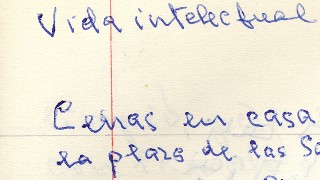 Vida intelectual
Cenas en casa
la plaza de las